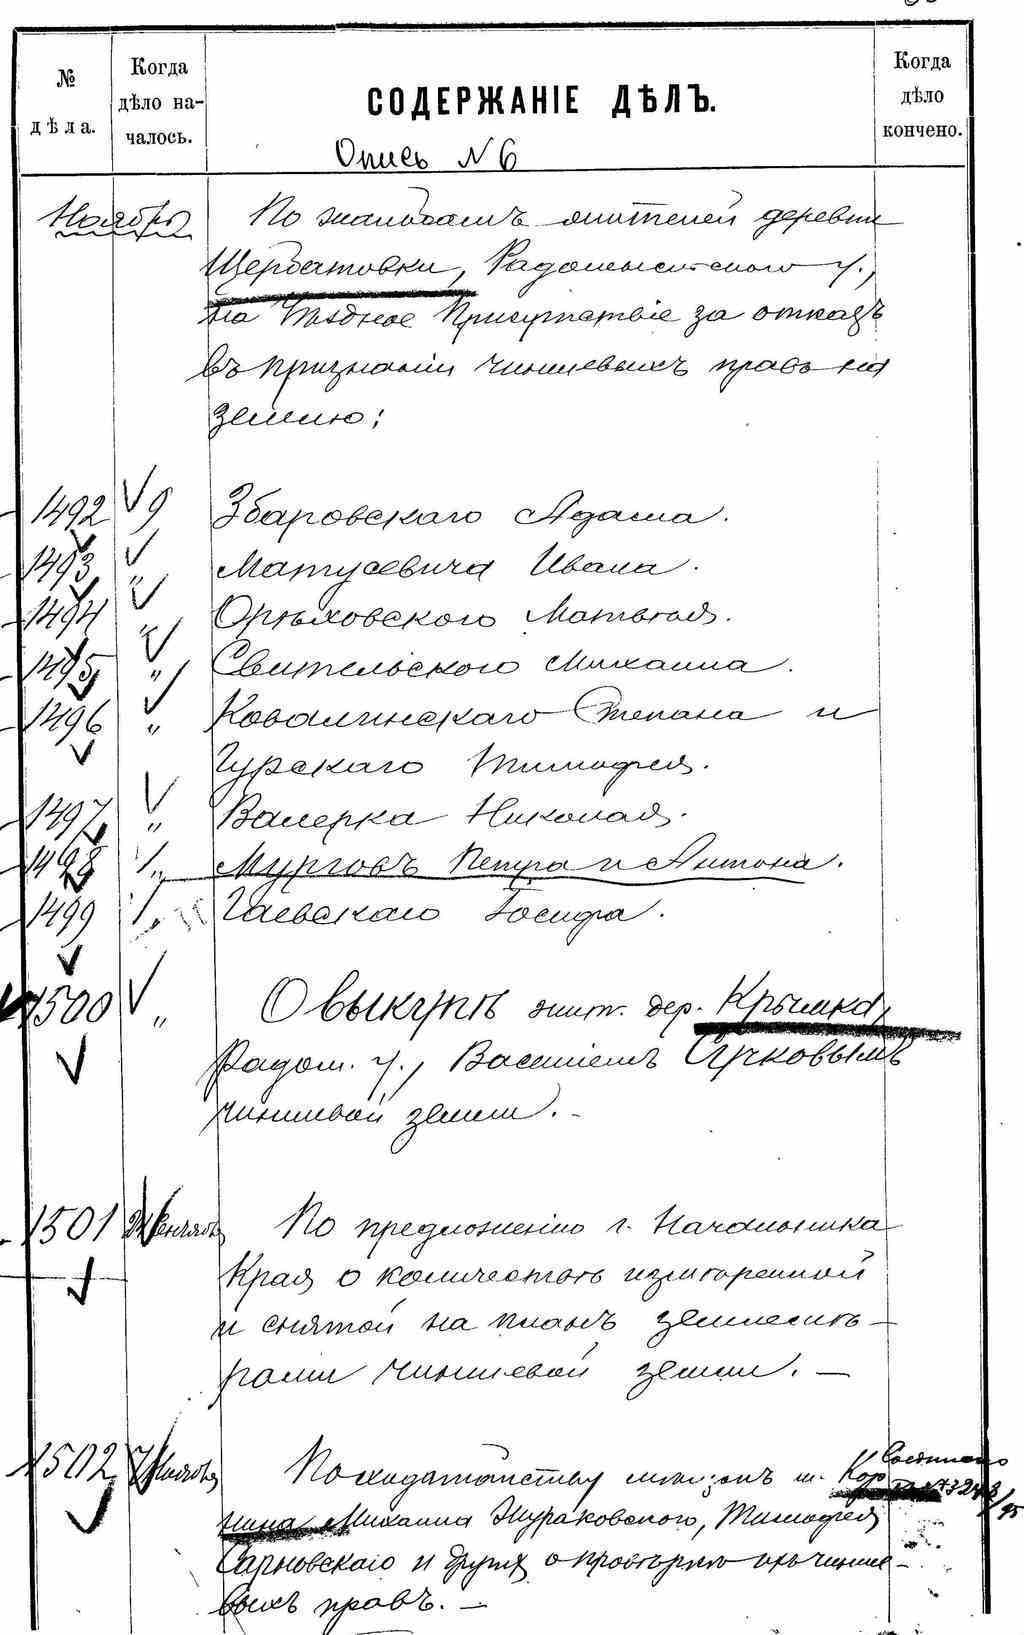 № дѣла.
Когда дѣло началось.
СОДЕРЖАНІЕ ДѢЛЪ.
Когда дѣло кончено.
Опись N 6
Ноябрь
По жалобамъ жителей деревни
Щербатовки, Радомысльскаго у.,
на Уѣздное Присутствіе за отказъ
въ признаніи чиншевыхъ правъ на
землю:
1492 9 Збаровскаго Адама.
1493 „ Матусевича Ивана.
1494 „ Орѣховскаго Матвѣя.
1495 „ Свительскаго Михаила.
1496 „ Ковалинскаго Степана и
Гурскаго Тимофея.
1497 „ Валерка Николая.
1498 „ Мурговъ Петра и Антона.
1499 „ Гаевскаго Іосифа.
1500 „ О выкупѣ жит. дер. Крымка,
Радом. у., Василіемъ Сучковымъ
чиншевой земли.
1501 По предложенію г. Начальника
Края о количествѣ измѣренной
и снятой на планъ землемѣ-
рами чиншевой земли. —
1502 По ходатайству мѣщанъ м. Кор
нина Михаила Жураковскаго, Тимофея
Сарновскаго и другихъ о провѣркѣ ихъ чинше-
выхъ правъ. —